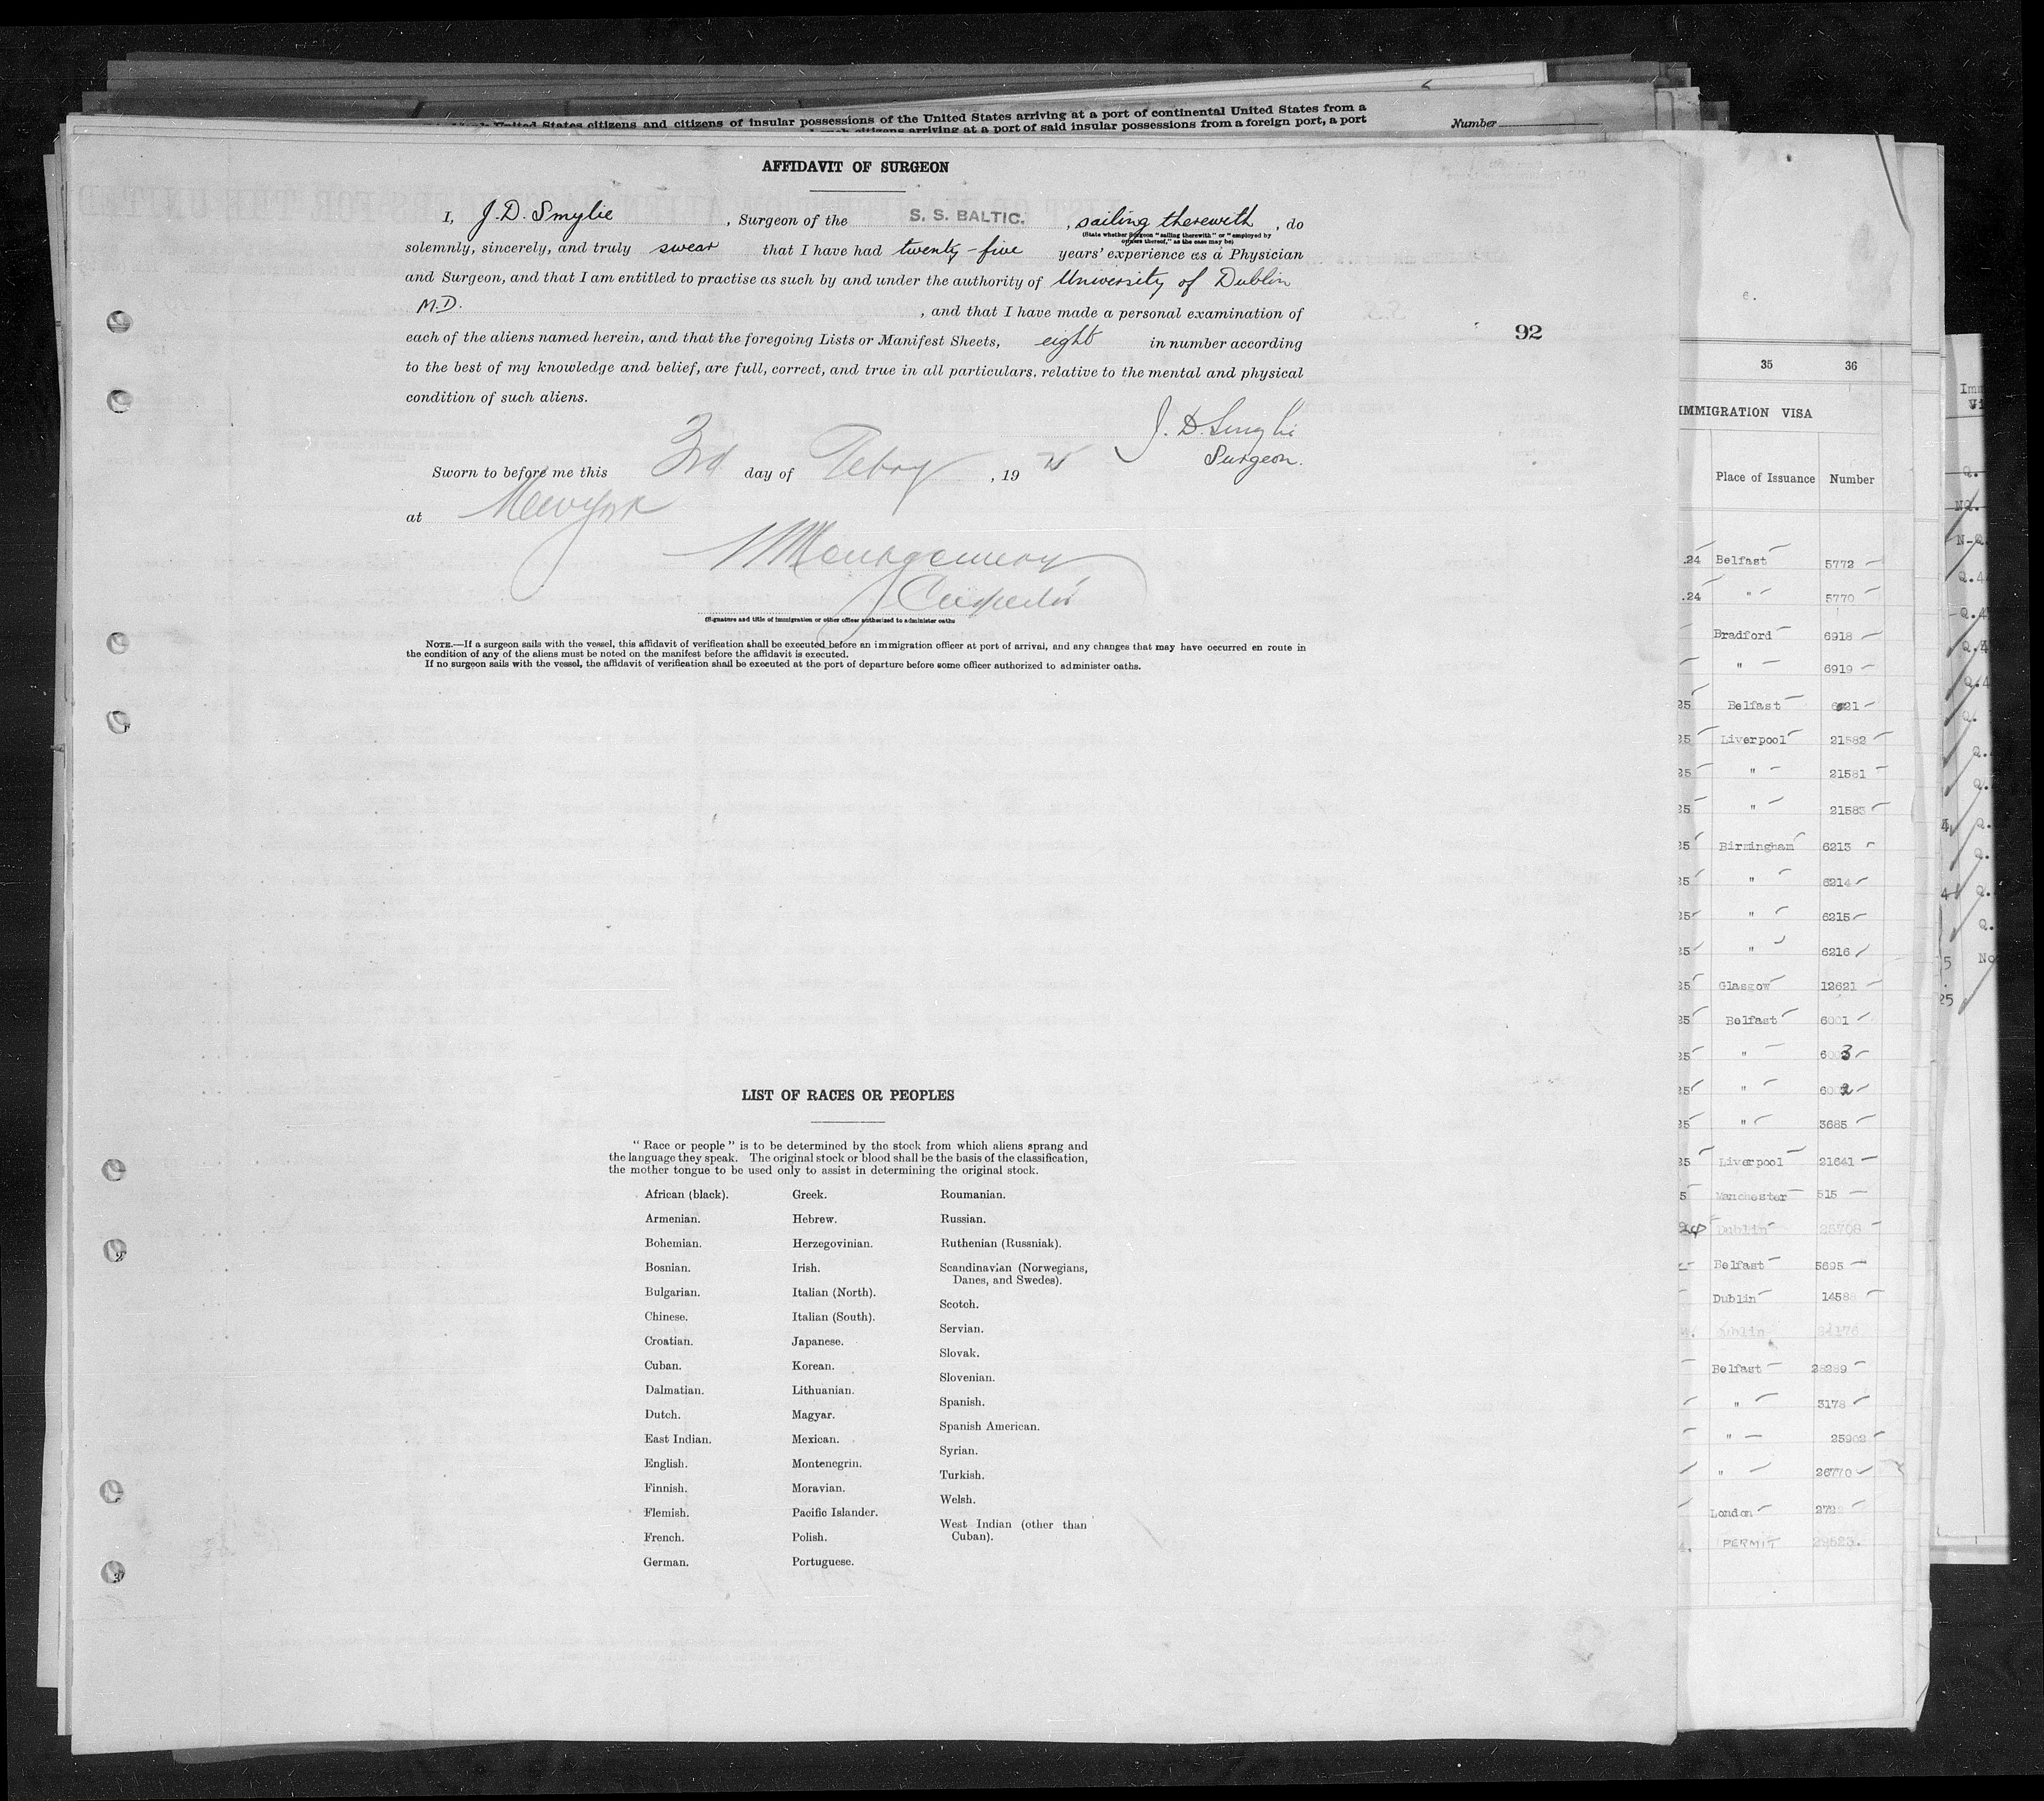 United States citizens and citizens of insular possessions of the United States arriving at a port of continental United States from a
citizens arriving at a port of said insular possessions from a foreign port, a port
Number
AFFIDAVIT OF SURGEON
I, J. D. Smylie, Surgeon of the S. S. BALTIC., sailing therewith, do
(State whether Surgeon "sailing therewith" or "employed by
owners thereof," as the case may be)
solemnly, sincerely, and truly swear that I have had twenty-five years' experience as a Physician
and Surgeon, and that I am entitled to practise as such by and under the authority of University of Dublin
M.D. , and that I have made a personal examination of
each of the aliens named herein, and that the foregoing Lists or Manifest Sheets, eight in number according
to the best of my knowledge and belief, are full, correct, and true in all particulars, relative to the mental and physical
condition of such aliens.
J. D. Smylie
Surgeon.
Sworn to before me this 3rd day of Febry, 19 25
at New York
Montgomery
Inspector
(Signature and title of immigration or other officer authorized to administer oaths
NOTE.—If a surgeon sails with the vessel, this affidavit of verification shall be executed before an immigration officer at port of arrival, and any changes that may have occurred en route in
the condition of any of the aliens must be noted on the manifest before the affidavit is executed.
If no surgeon sails with the vessel, the affidavit of verification shall be executed at the port of departure before some officer authorized to administer oaths.
92
LIST OF RACES OR PEOPLES
"Race or people" is to be determined by the stock from which aliens sprang and
the language they speak. The original stock or blood shall be the basis of the classification,
the mother tongue to be used only to assist in determining the original stock.
African (black).
Armenian.
Bohemian.
Bosnian.
Bulgarian.
Chinese.
Croatian.
Cuban.
Dalmatian.
Dutch.
East Indian.
English.
Finnish.
Flemish.
French.
German.
Greek.
Hebrew.
Herzegovinian.
Irish.
Italian (North).
Italian (South).
Japanese.
Korean.
Lithuanian.
Magyar.
Mexican.
Montenegrin.
Moravian.
Pacific Islander.
Polish.
Portuguese.
Roumanian.
Russian.
Ruthenian (Russniak).
Scandinavian (Norwegians,
Danes, and Swedes).
Scotch.
Servian.
Slovak.
Slovenian.
Spanish.
Spanish American.
Syrian.
Turkish.
Welsh.
West Indian (other than
Cuban).
35 36
IMMIGRATION VISA
Place of Issuance Number
.24 Belfast 5772
.24 " 5770
Bradford 6918
" 6919
25 Belfast
25 Liverpool 21582
25 " 21581
25 " 21583
25 Birmingham 6213
25 " 6214
25 " 6215
25 " 6216
25 Glasgow 12621
25 Belfast 6001
25 " 6003
25 " 6002
25 " 3685
25 Liverpool 21641
5 Manchester 515
24 Dublin 25708
Belfast 5695
Dublin 1458
Dublin
Belfast
" 3178
" 25902
" 26770
London
PERMIT